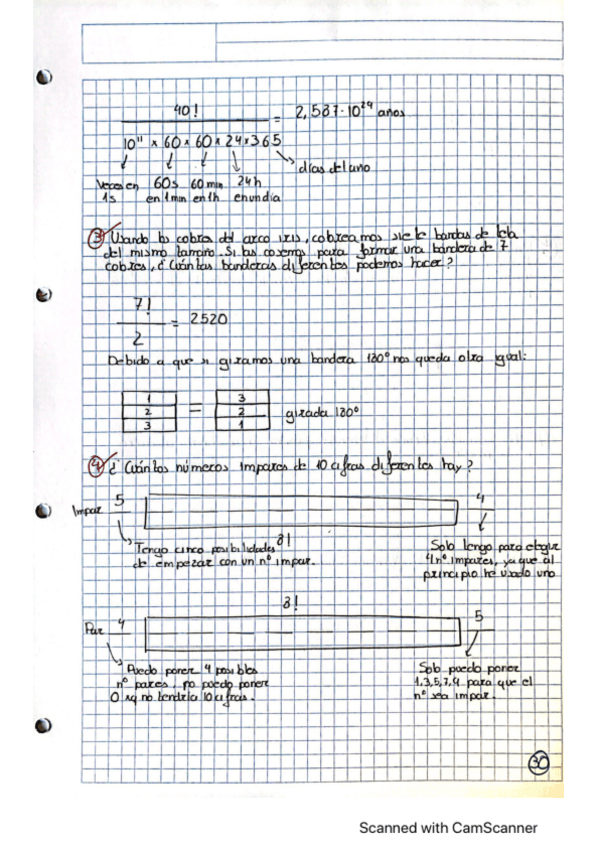 40! / 10¹¹ × 60 × 60 × 24 × 365 = 2,587·10²⁹ años
días del año
Veces en 1s
60s en 1 min
60 min en 1h
24h en un día
③ Usando los colores del arco iris, coloreamos siete bandas de tela
del mismo tamaño. Si las cosemos para formar una bandera de 7
colores, ¿Cuántas banderas diferentes podemos hacer?
7! / 2 = 2520
Debido a que si giramos una bandera 180° nos queda otra igual:
1 2 3 = 3 2 1 girada 180°
④ ¿Cuántos números impares de 10 cifras diferentes hay?
Impar 5 4
8!
Tengo cinco posibilidades
de empezar con un nº impar.
Solo tengo para elegir
4 nº impares, ya que al
principio he usado uno
8!
Par 4 5
Puedo poner 4 posibles
nº pares, no puedo poner
0 xq no tendría 10 cifras.
Solo puedo poner
1,3,5,7,9 para que el
nº sea impar.
30
Scanned with CamScanner